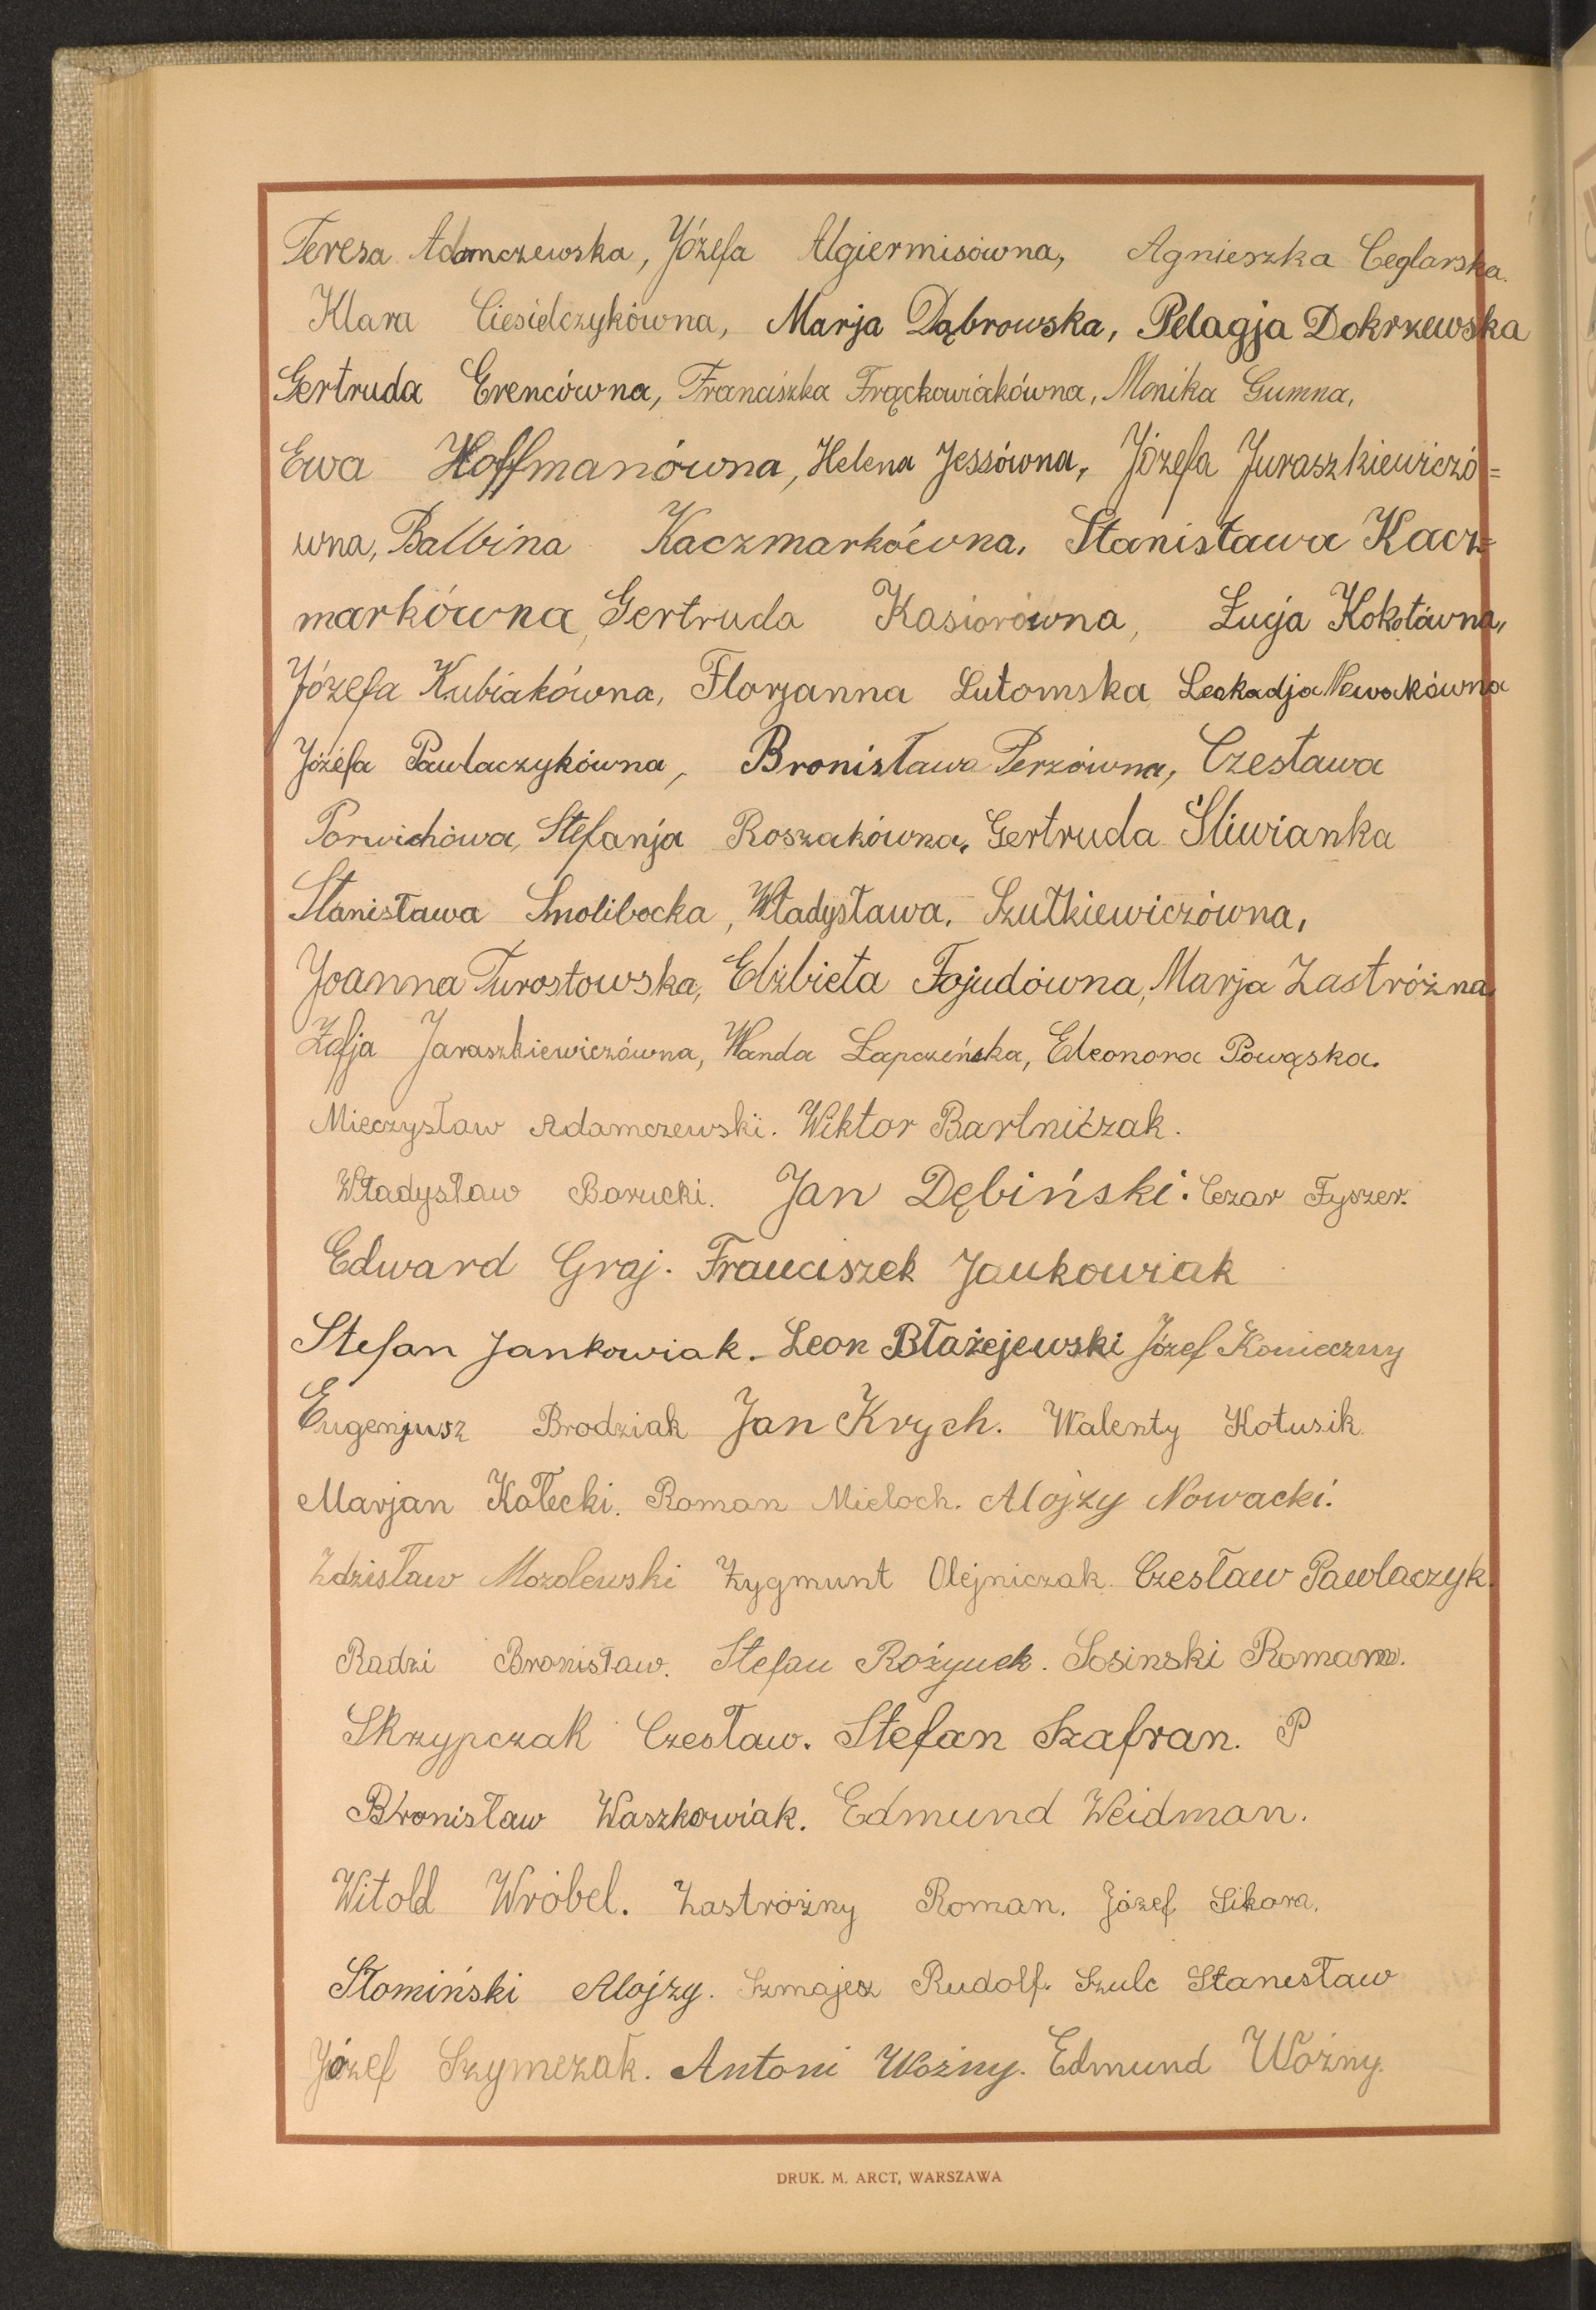 Teresa Adamczewska, Józefa Algiermisówna, Agnieszka Ceglarska.
Klara Ciesielczykówna, Marja Dąbrowska, Pelagja Dokrzewska
Gertruda Erencówna, Franciszka Frąckowiakówna, Monika Gumna,
Ewa Hoffmanówna, Helena Jessówna, Józefa Juraszkiewiczó=
wna, Balbina Kaczmarkówna, Stanisława Kacz=
markówna, Gertruda Kasiorówna, Łucja Kokotówna,
Józefa Kubiakówna, Florjanna Lutomska, Leokadja Nowakówna
Józefa Pawlaczykówna, Bronisława Perzówna, Czesława
Porwichowa, Stefanja Roszakówna, Gertruda Śliwianka
Stanisława Smolibocka, Władysława, Szutkiewiczówna,
Joanna Turostowska, Elżbieta Fojudówna, Marja Zastróżna
Zofja Jaraszkiewiczówna, Wanda Łapczeńska, Eleonora Powąska.
Mieczysław Adamczewski. Wiktor Bartniczak.
Władysław Borucki. Jan Dębiński. Cezar Fyszer.
Edward Graj. Franciszek Jankowiak
Stefan Jankowiak. Leon Błażejewski Józef Konieczny
Eugenjusz Brodziak Jan Krych. Walenty Kotusik
Marjan Kołecki. Roman Mieloch. Alojzy Nowacki.
Zdzisław Mozolewski Zygmunt Olejniczak. Czesław Pawlaczyk.
Radzi Bronisław. Stefan Rożynek. Sosinski Roman.
Skrzypczak Czesław. Stefan Szafran. P
Bronisław Waszkowiak. Edmund Weidman.
Witold Wróbel. Zastróżny Roman. Józef Sikora.
Słomiński Alojzy. Szmajesz Rudolf. Szulc Stanisław
Józef Szymczak. Antoni Woźny. Edmund Woźny.
DRUK. M. ARCT, WARSZAWA